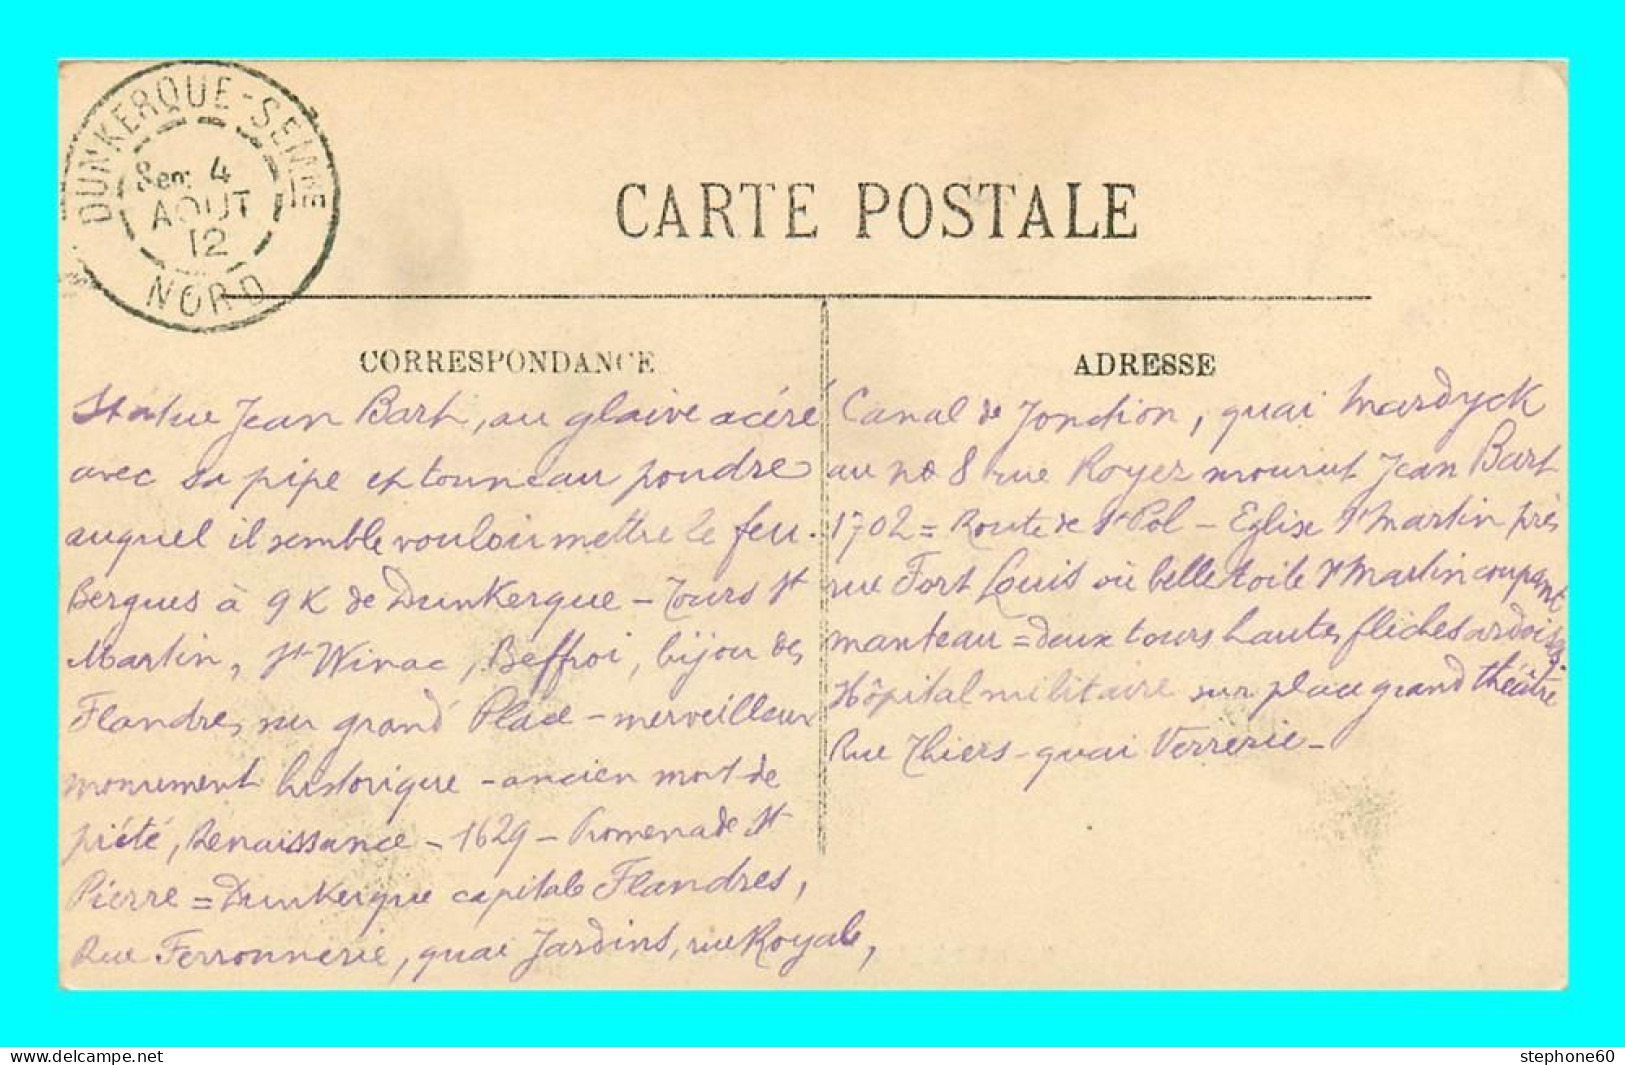 DUNKERQUE-SEINE
4
AOUT
12
NORD
CARTE POSTALE
CORRESPONDANCE
Statue Jean Bart, au glaive acéré
avec sa pipe et tonneau poudre
auquel il semble vouloir mettre le feu.
Bergues à 9 K de Dunkerque – Tours St
Martin, St Winoc, Beffroi, bijou des
Flandres sur grand Place – merveilleux
monument historique – ancien mont-de
piété, Renaissance – 1629 – Promenade St
Pierre = Dunkerque capitale Flandres,
Rue Ferronnerie, quai Jardins, rue Royale,
ADRESSE
Canal de Jonction, quai Mardyck
au no 8 rue Royer mourut Jean Bart
1702 = Route de St Pol – Eglise St Martin près
rue Fort Louis où belle toile St Martin coupant
manteau = deux tours hautes, flèches ardoises.
Hôpital militaire sur place grand théâtre
Rue Thiers – quai Verrerie –
www.delcampe.net
stephone60